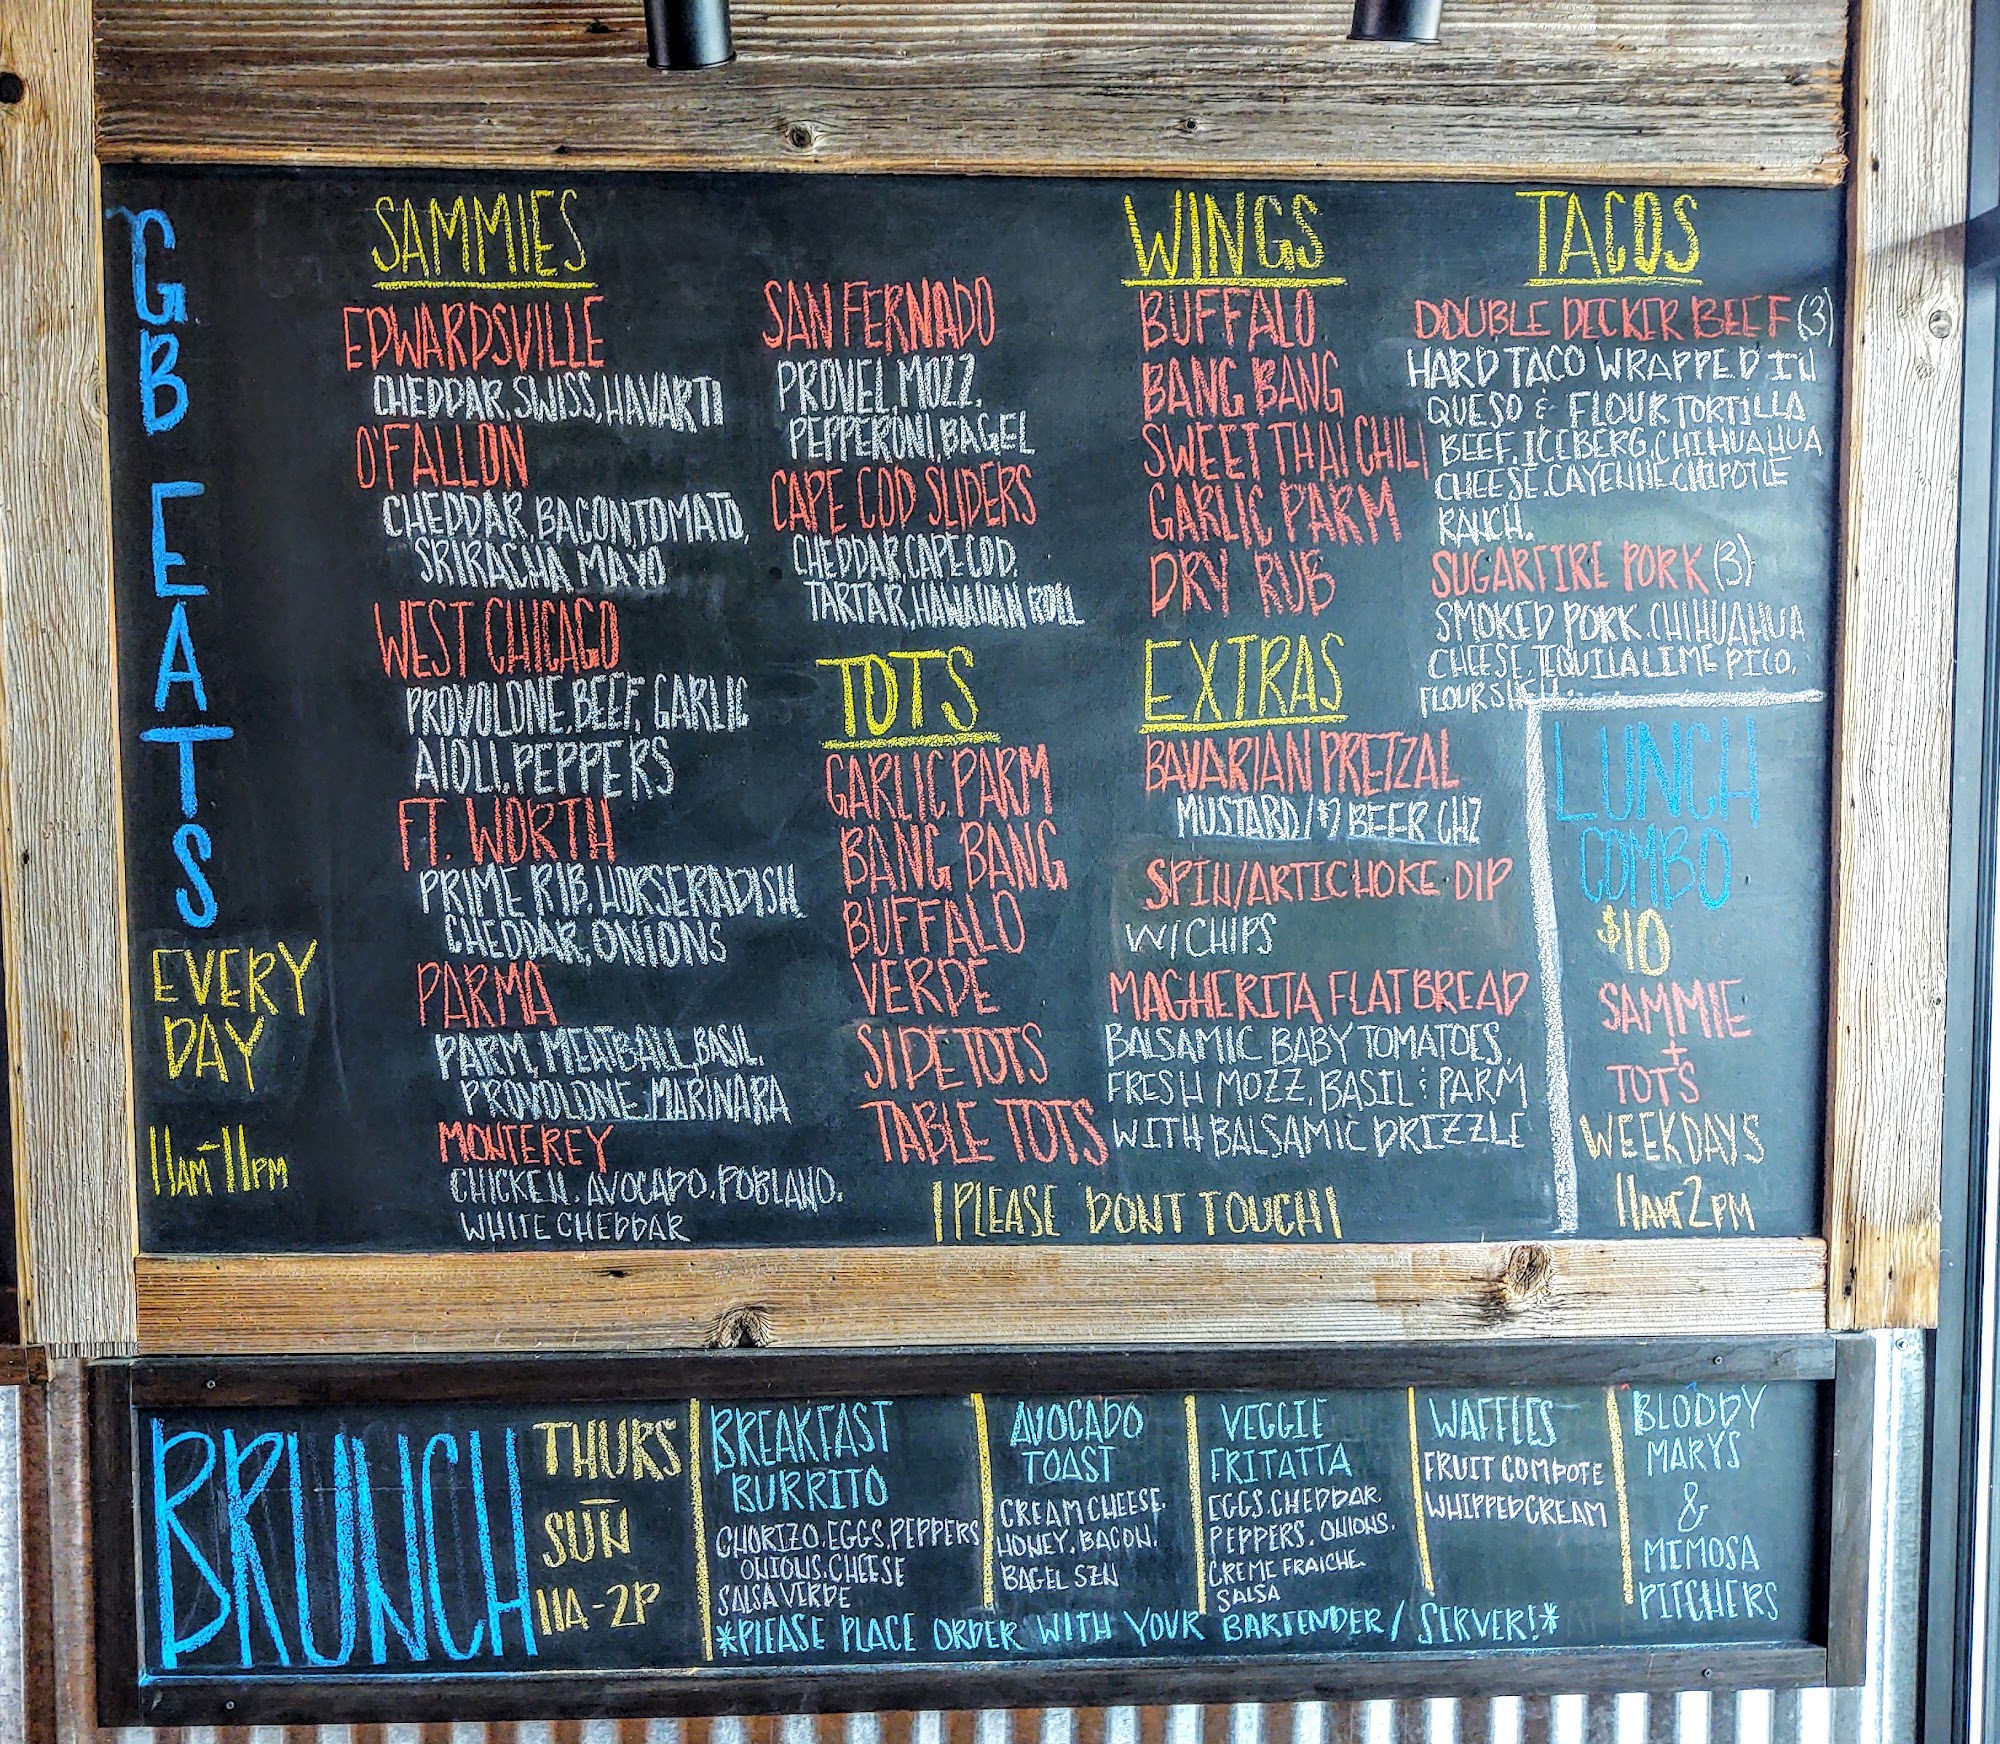 GB EATS
EVERY
DAY
11AM-11PM
SAMMIES
EDWARDSVILLE
CHEDDAR, SWISS, HAVARTI
O'FALLON
CHEDDAR, BACON, TOMATO,
SRIRACHA MAYO
WEST CHICAGO
PROVOLONE, BEEF, GARLIC
AIOLI, PEPPERS
FT. WORTH
PRIME RIB, HORSERADISH,
CHEDDAR, ONIONS
PARMA
PARM, MEATBALL, BASIL,
PROVOLONE, MARINARA
MONTEREY
CHICKEN, AVOCADO, POBLANO,
WHITE CHEDDAR
SAN FERNADO
PROVEL, MOZZ,
PEPPERONI, BAGEL
CAPE COD SLIDERS
CHEDDAR, CAPE COD,
TARTAR, HAWAIIAN ROLL
TOTS
GARLIC PARM
BANG BANG
BUFFALO
VERDE
SIDE TOTS
TABLE TOTS
WINGS
BUFFALO
BANG BANG
SWEET THAI CHILI
GARLIC PARM
DRY RUB
EXTRAS
BAVARIAN PRETZAL
MUSTARD/$2 BEER CHZ
SPIN/ARTICHOKE DIP
W/CHIPS
MAGHERITA FLATBREAD
BALSAMIC BABY TOMATOES,
FRESH MOZZ, BASIL & PARM
WITH BALSAMIC DRIZZLE
TACOS
DOUBLE DECKER BEEF (3)
HARD TACO WRAPPED IN
QUESO & FLOUR TORTILLA
BEEF, ICEBERG, CHIHUAHUA
CHEESE, CAYENNE CHIPOTLE
RANCH.
SUGARFIRE PORK (3)
SMOKED PORK, CHIHUAHUA
CHEESE, TEQUILA LIME PICO,
FLOUR SHELL.
LUNCH
COMBO
$10
SAMMIE
+
TOTS
WEEKDAYS
11AM-2PM
!PLEASE DONT TOUCH!
BRUNCH
THURS
-
SUN
11A-2P
BREAKFAST
BURRITO
CHORIZO, EGGS, PEPPERS
ONIONS, CHEESE
SALSA VERDE
AVOCADO
TOAST
CREAM CHEESE,
HONEY, BACON,
BAGEL SZN
VEGGIE
FRITATTA
EGGS, CHEDDAR,
PEPPERS, ONIONS,
CREME FRAICHE,
SALSA
WAFFLES
FRUIT COMPOTE
WHIPPED CREAM
BLOODY
MARYS
&
MIMOSA
PITCHERS
*PLEASE PLACE ORDER WITH YOUR BARTENDER/SERVER!*